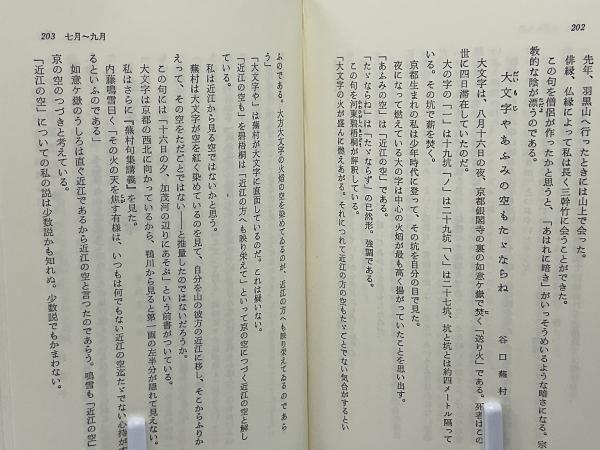 202
先年、羽黒山へ行ったときには山上で会った。
俳縁、仏縁によって私は長く三幹竹に会うことができた。
この句を僧侶が作ったかと思うと、「あはれに暗き」がいっそうめいるような暗さになる。宗
教的な陰が漂うのである。
大文字やあふみの空もたゞならね
だいもじ
谷口蕪村
大文字は、八月十六日の夜、京都銀閣寺の裏の如意ケ嶽で焚く「送り火」である。死者はこの
世に四日滞在していたのだ。
大の字の「一」は十九坑「ノ」は二十九坑「乀」は二十七坑、坑と坑とは約四メートル隔って
いる。その坑で薪を焚く。
京都生まれの私は少年時代に登って、その坑を自分の目で見た。
夜になって燃えている大の字は中心の火焰が最も高く揚がっていたことを思い出す。
「あふみの空」は「近江の空」である。
「たゞならね」は「たゞならず」の已然形。強調である。
この句を河東碧梧桐が評釈している。
「大文字の火が盛んに燃えあがる。それにつれて近江の方の空もたゞごとでない気合がするとい
203 七月〜九月
ふのである。大方大文字の火焰の空を染めてゐるのが、近江の方へも映り栄えてゐるのであら
う」
「大文字や」は蕪村が大文字に直面しているのだ。これは疑いない。
「近江の空も」を碧梧桐は「近江の方へも映り栄えて」といって京の空につづく近江の空と解し
ている。
私は近江から見る空ではないかと思う。
蕪村は大文字が空を紅く染めているのを見て、自分を山の彼方の近江に移し、そこからふりか
えって、その空をただごとではない——と推量したのではないだろうか。
この句には「十六日の夕、加茂河の辺りにあそぶ」という前書がついている。
大文字は京都の西北に向かっているから、鴨川から見ると第一画の左半分が隠れて見えない。
私はさらに『蕪村句集講義』を見た。
内藤鳴雪曰く「その火の天を焦す有様は、いつもは何でもない近江の空迄たゞでない心持がす
るといふのである」
如意ケ嶽のうしろは直ぐ近江であるから近江の空と言つたのであらう。鳴雪も「近江の空」を
京の空のつづきと考えている。
「近江の空」についての私の説は少数説かも知れぬ。少数説でもかまわない。